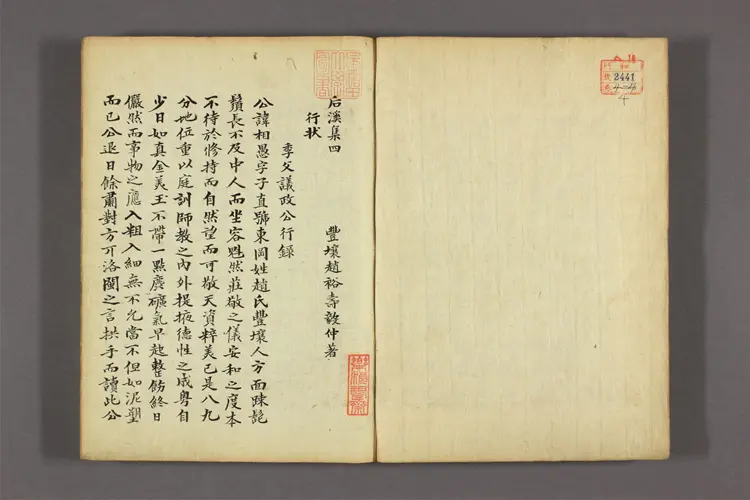 后溪集四
豐壤趙裕壽毅仲著
行状
季父議政公行録
公諱相愚字子直號東岡姓趙氏豐壤人方面疎髭
鬚長不及中人而坐容魁然莊敬之儀安和之度本
不待於修持而自然望而可敬天資粹美已是八九
分地位重以庭訓師教之內外提掖德性之成粤自
少日如真金美玉不帶一點麄礦氣早起整飭終日
儼然而事物之應入粗入細無不允當不但如泥塑
而已公退日餘肅對方冊洛閩之言拱手而讀此公
2441
4